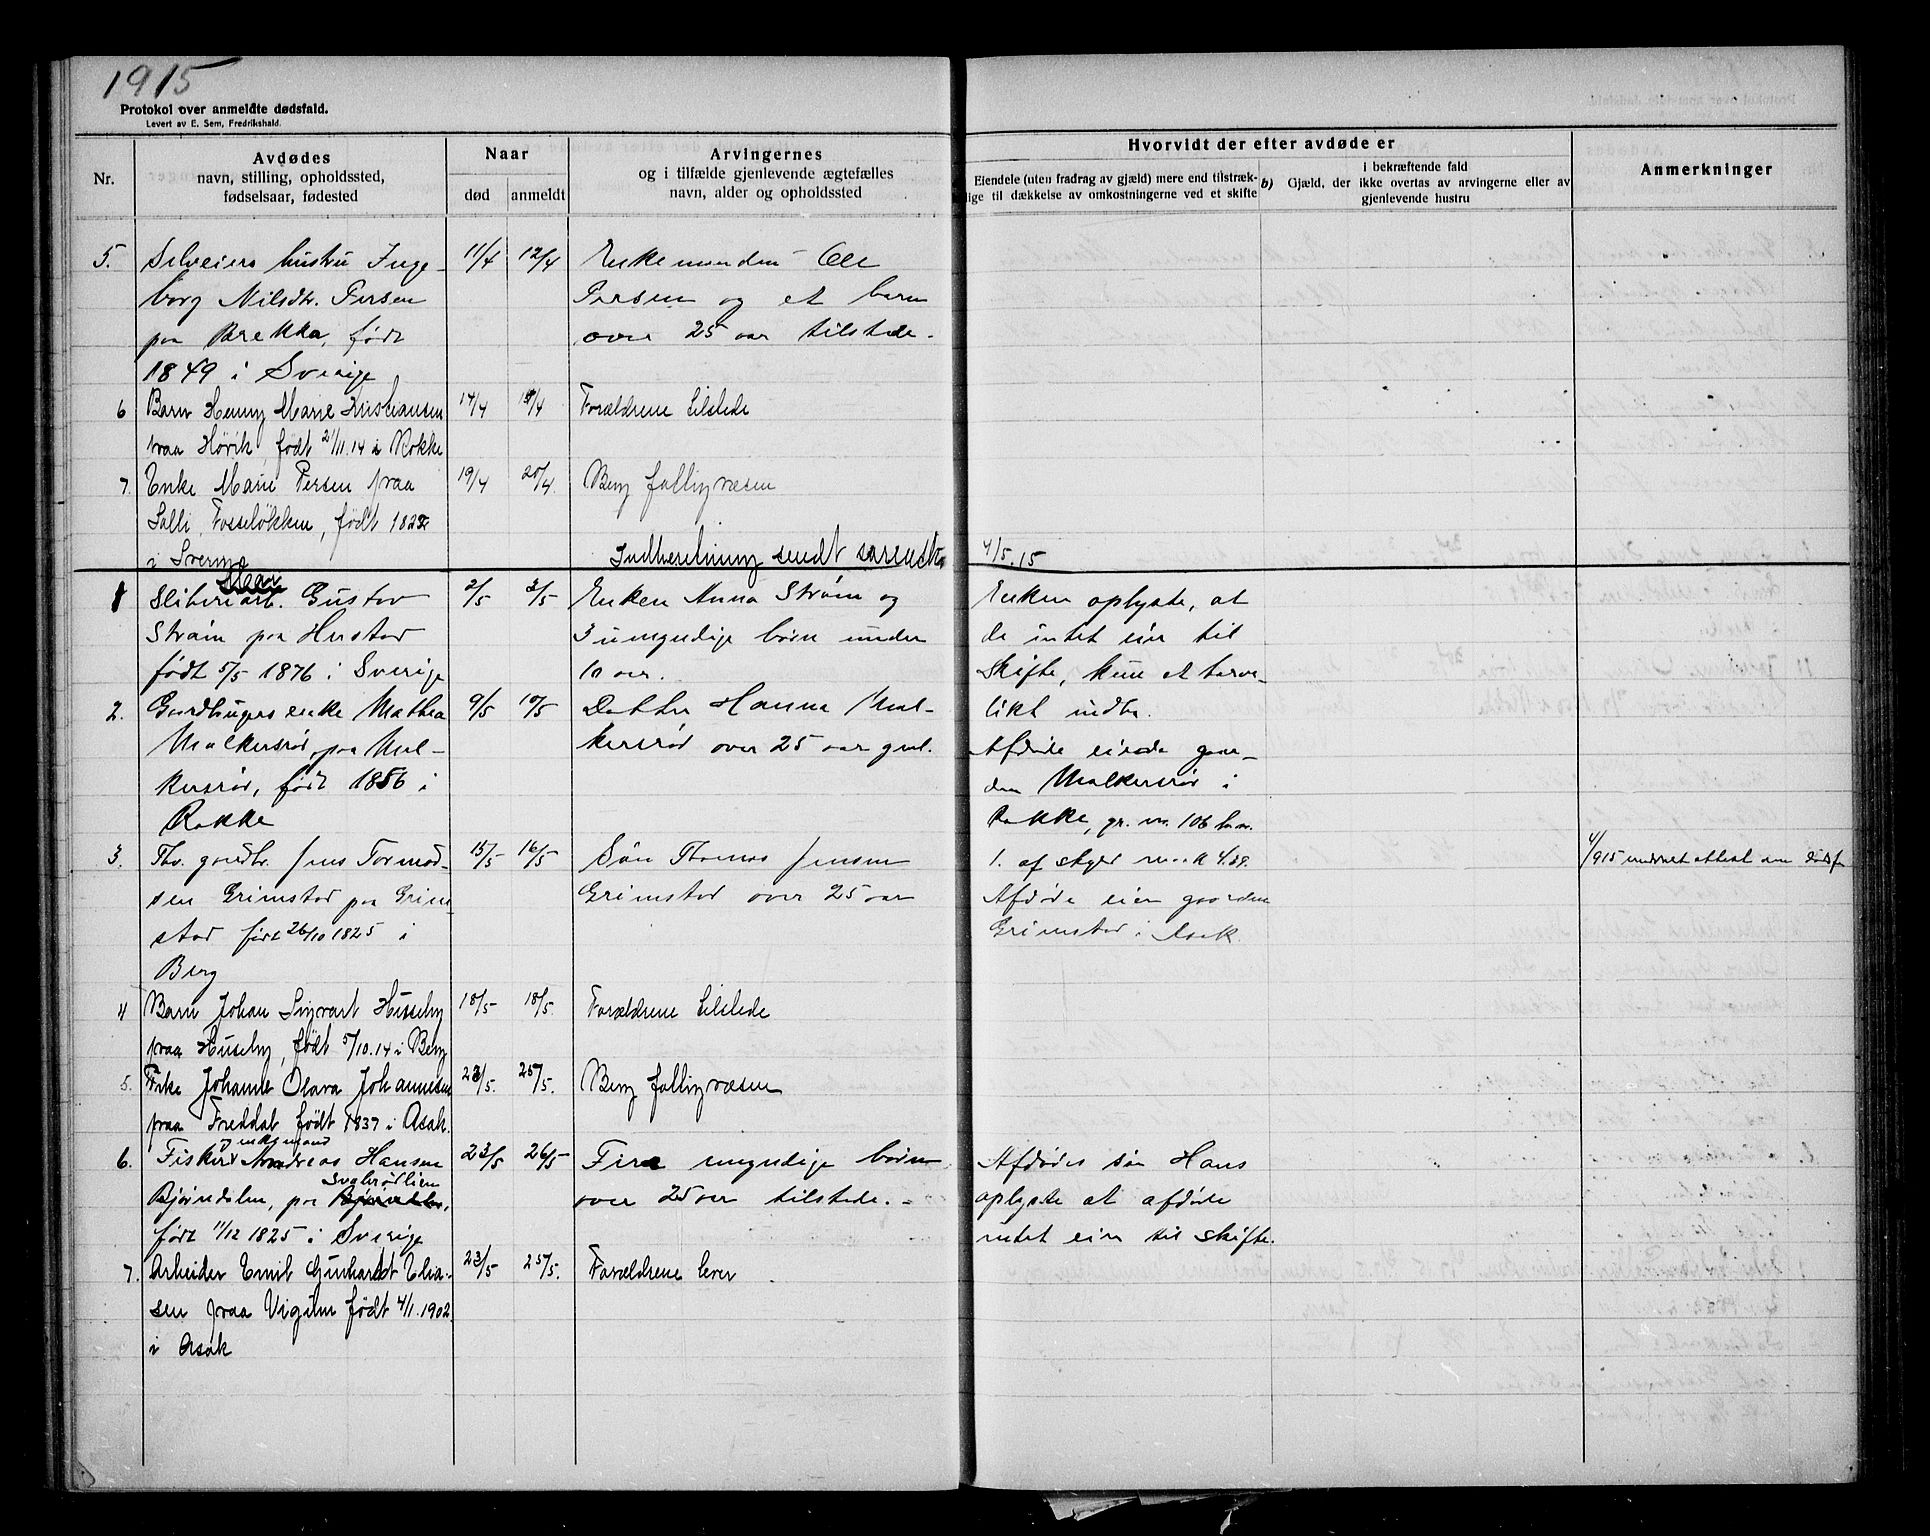 1915
Protokol over anmeldte dødsfald.
Levert av E. Sem, Fredrikshald.
Nr.
Avdødes
navn, stilling, opholdssted,
fødselsaar, fødested
Naar
død
anmeldt
Arvingernes
og i tilfælde gjenlevende ægtefælles
navn, alder og opholdssted
Hvorvidt der efter avdøde er
Eiendele (uten fradrag av gjæld) mere end tilstræk-
lige til dækkelse av omkostningerne ved et skifte
b) Gjæld, der
i bekræftende fald
ikke overtas av arvingerne eller av
gjenlevende hustru
Anmerkninger
5. Selveiers hustru Inge-
borg Nilsdtr. Persen
paa Brekka, født
1849 i Sverige
11/4 12/4
Enkemanden Ole
Persen og et barn
over 25 aar tilstede.
6 Barn Henny Marie Kristiansen
paa Hörik født 21/11.14 i Rokke
14/4 15/4
Forældrene tilstede
7. Enke Marie Persen paa
Solli, Fosseløkken, født 1822
i Sverige
19/4 20/4.
Berg fattigvæsen
Indberetning sendt sorensk. 4/5.15
1 Sliberiarb. Gustav
Strøm paa Hustad
født 5/5 1876 i Sverige
2/5 3/5
Enken Anna Strøm og
3 umyndige børn under
10 aar.
Enken oplyste, at
de intet eier til
skifte, kun et tarve-
likt indbo.
2. Gaardbrugers enke Mathea
Malkersrød, paa Mal-
kersrød, født 1856 i
Rokke
9/5 10/5
Datter Hanna Mal-
kersrød over 25 aar gml.
Afdøde eiede gaar-
den Malkersrød i
Rokke, gr. nr. 106 br. nr.
1. af skyld mark 4.89.
3. Fhv. gaardbr. Jens Tormod-
sen Grimstad paa Grim-
stad født 26/10 1825 i
Berg
15/5 16/5
Søn Thomas Jensen
Grimstad over 25 aar
Afdøde eier gaarden
Grimstad i Asak.
4/915 attest om dødsf
4 Barn Johan Sigvart Huseby
paa Huseby, født 5/10.14 i Berg
18/5 18/5.
Forældrene tilstede
5. Enke Johanne Olava Johannesen
paa Freddal født 1837 i Asak.
23/5. 25/5.
Berg fattigvæsen
6. Fisker og enkemand Andreas Hansen
Svalerødlien
Bjørndalen, paa
født 11/12 1825 i Sverige
23/5 26/5
Fire umyndige børn
over 25 aar tilstede.
Afdødes søn Hans
oplyste at afdøde
intet eier til skifte.
7. Arbeider Emil Gunhardt Elia-
sen paa Vigilm født 4/1.1902
i Asak
23/5 25/5.
Forældrene lever